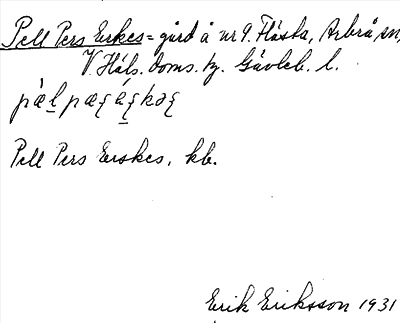 Pell Pers Erkes = gård å nr 9. Flästa, Arbrå, sn,
V. Häls. doms. hg. Gävleb. l.
Pell Pers Erskes, kb.
Erik Eriksson 1931